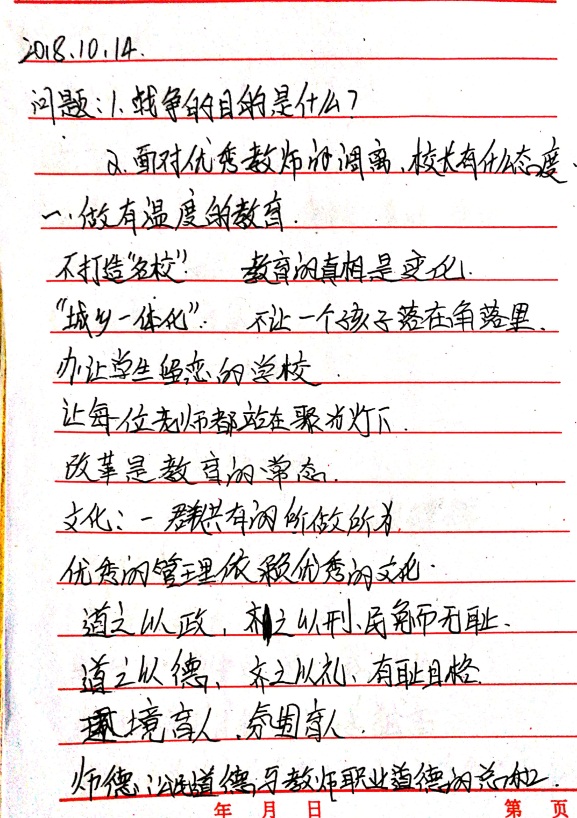 2018.10.14.
问题:1.战争的目的是什么?
2.面对优秀教师的调离、校长有什么态度、
一.做有温度的教育.
不打造"名校". 教育的真相是变化.
"城乡一体化". 不让一个孩子落在角落里.
办让学生留恋的学校.
让每位老师都站在聚光灯下
改革是教育的常态.
文化:一群共有的所做所为.
优秀的管理依赖优秀的文化.
道之以政,齐之以刑、民免而无耻.
道之以德、齐之以礼、有耻且格.
环境育人、氛围育人.
师德:公民道德与教师职业道德的总和.
年 月 日 第 页